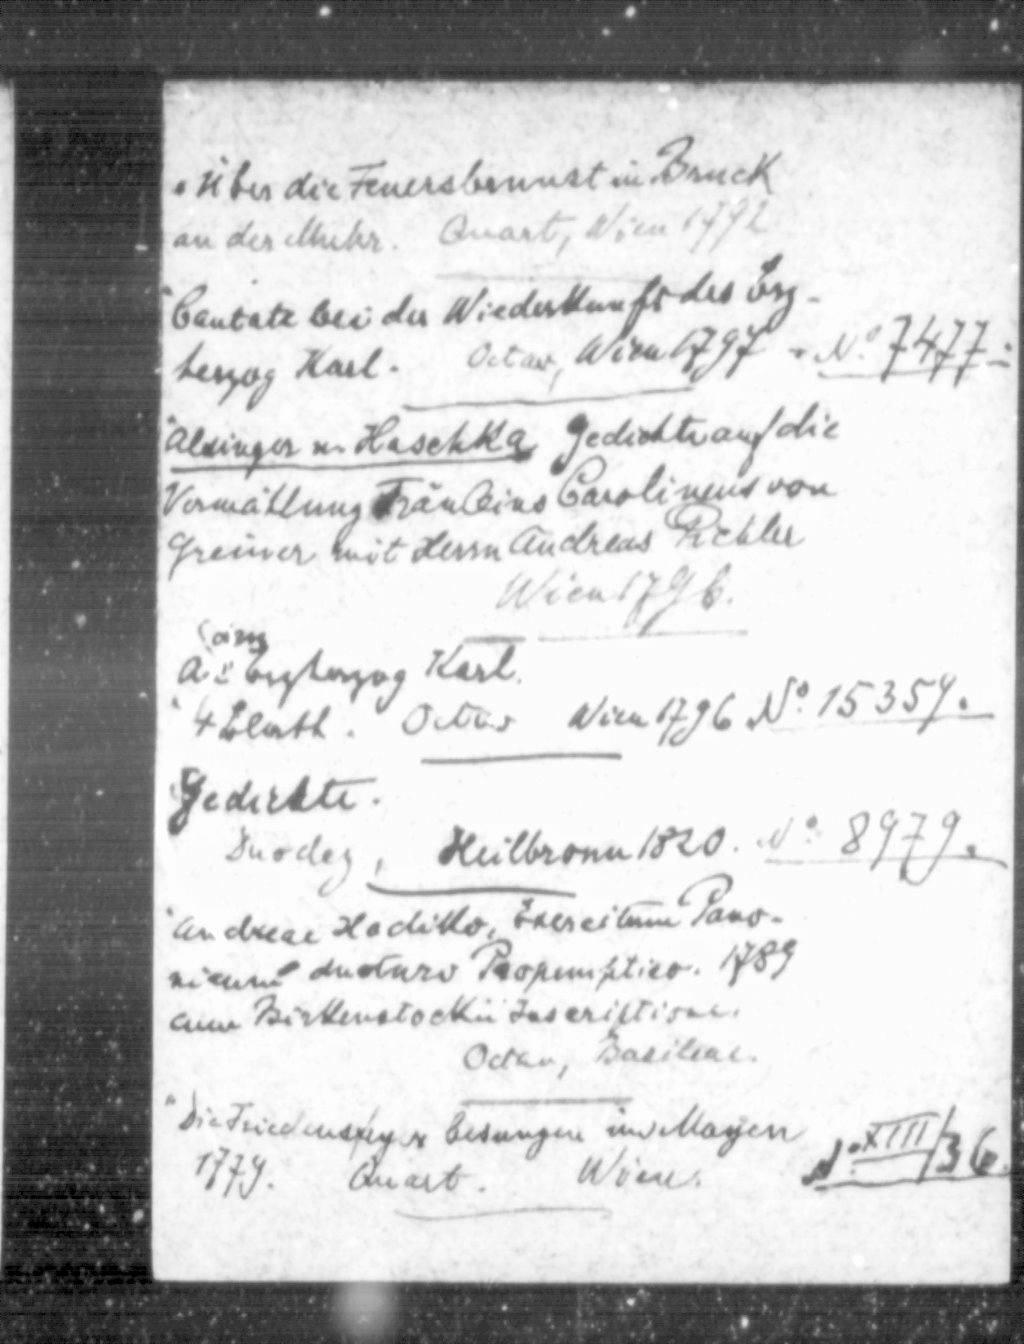 Über die Feuersbrunst in Bruck
an der Muhr. Quart, Wien 1792
Cantate bei der Wiederkunft des Erz-
herzog Karl. Octav, Wien 1797 - No. 7477.
Alxinger u. Haschka Gedichte auf die
Vermählung Fräuleins Carolinens von
Greiner mit Herrn Andreas Pichler
Wien 1796.
Erzherzog Karl.
4 Octav Wien 1796 No. 15359.
Gedichte.
Duodez, Heilbronn 1820. No. 8979.
Andreae Hadikio, Exercitum Pano-
nicum ducturo Propemptico. 1789
cum Birkenstockii Inscriptione.
Octav, Basileae.
Die Friedensfeyer besungen im Mayen
1779. Quart. Wien. No. XIII/36.